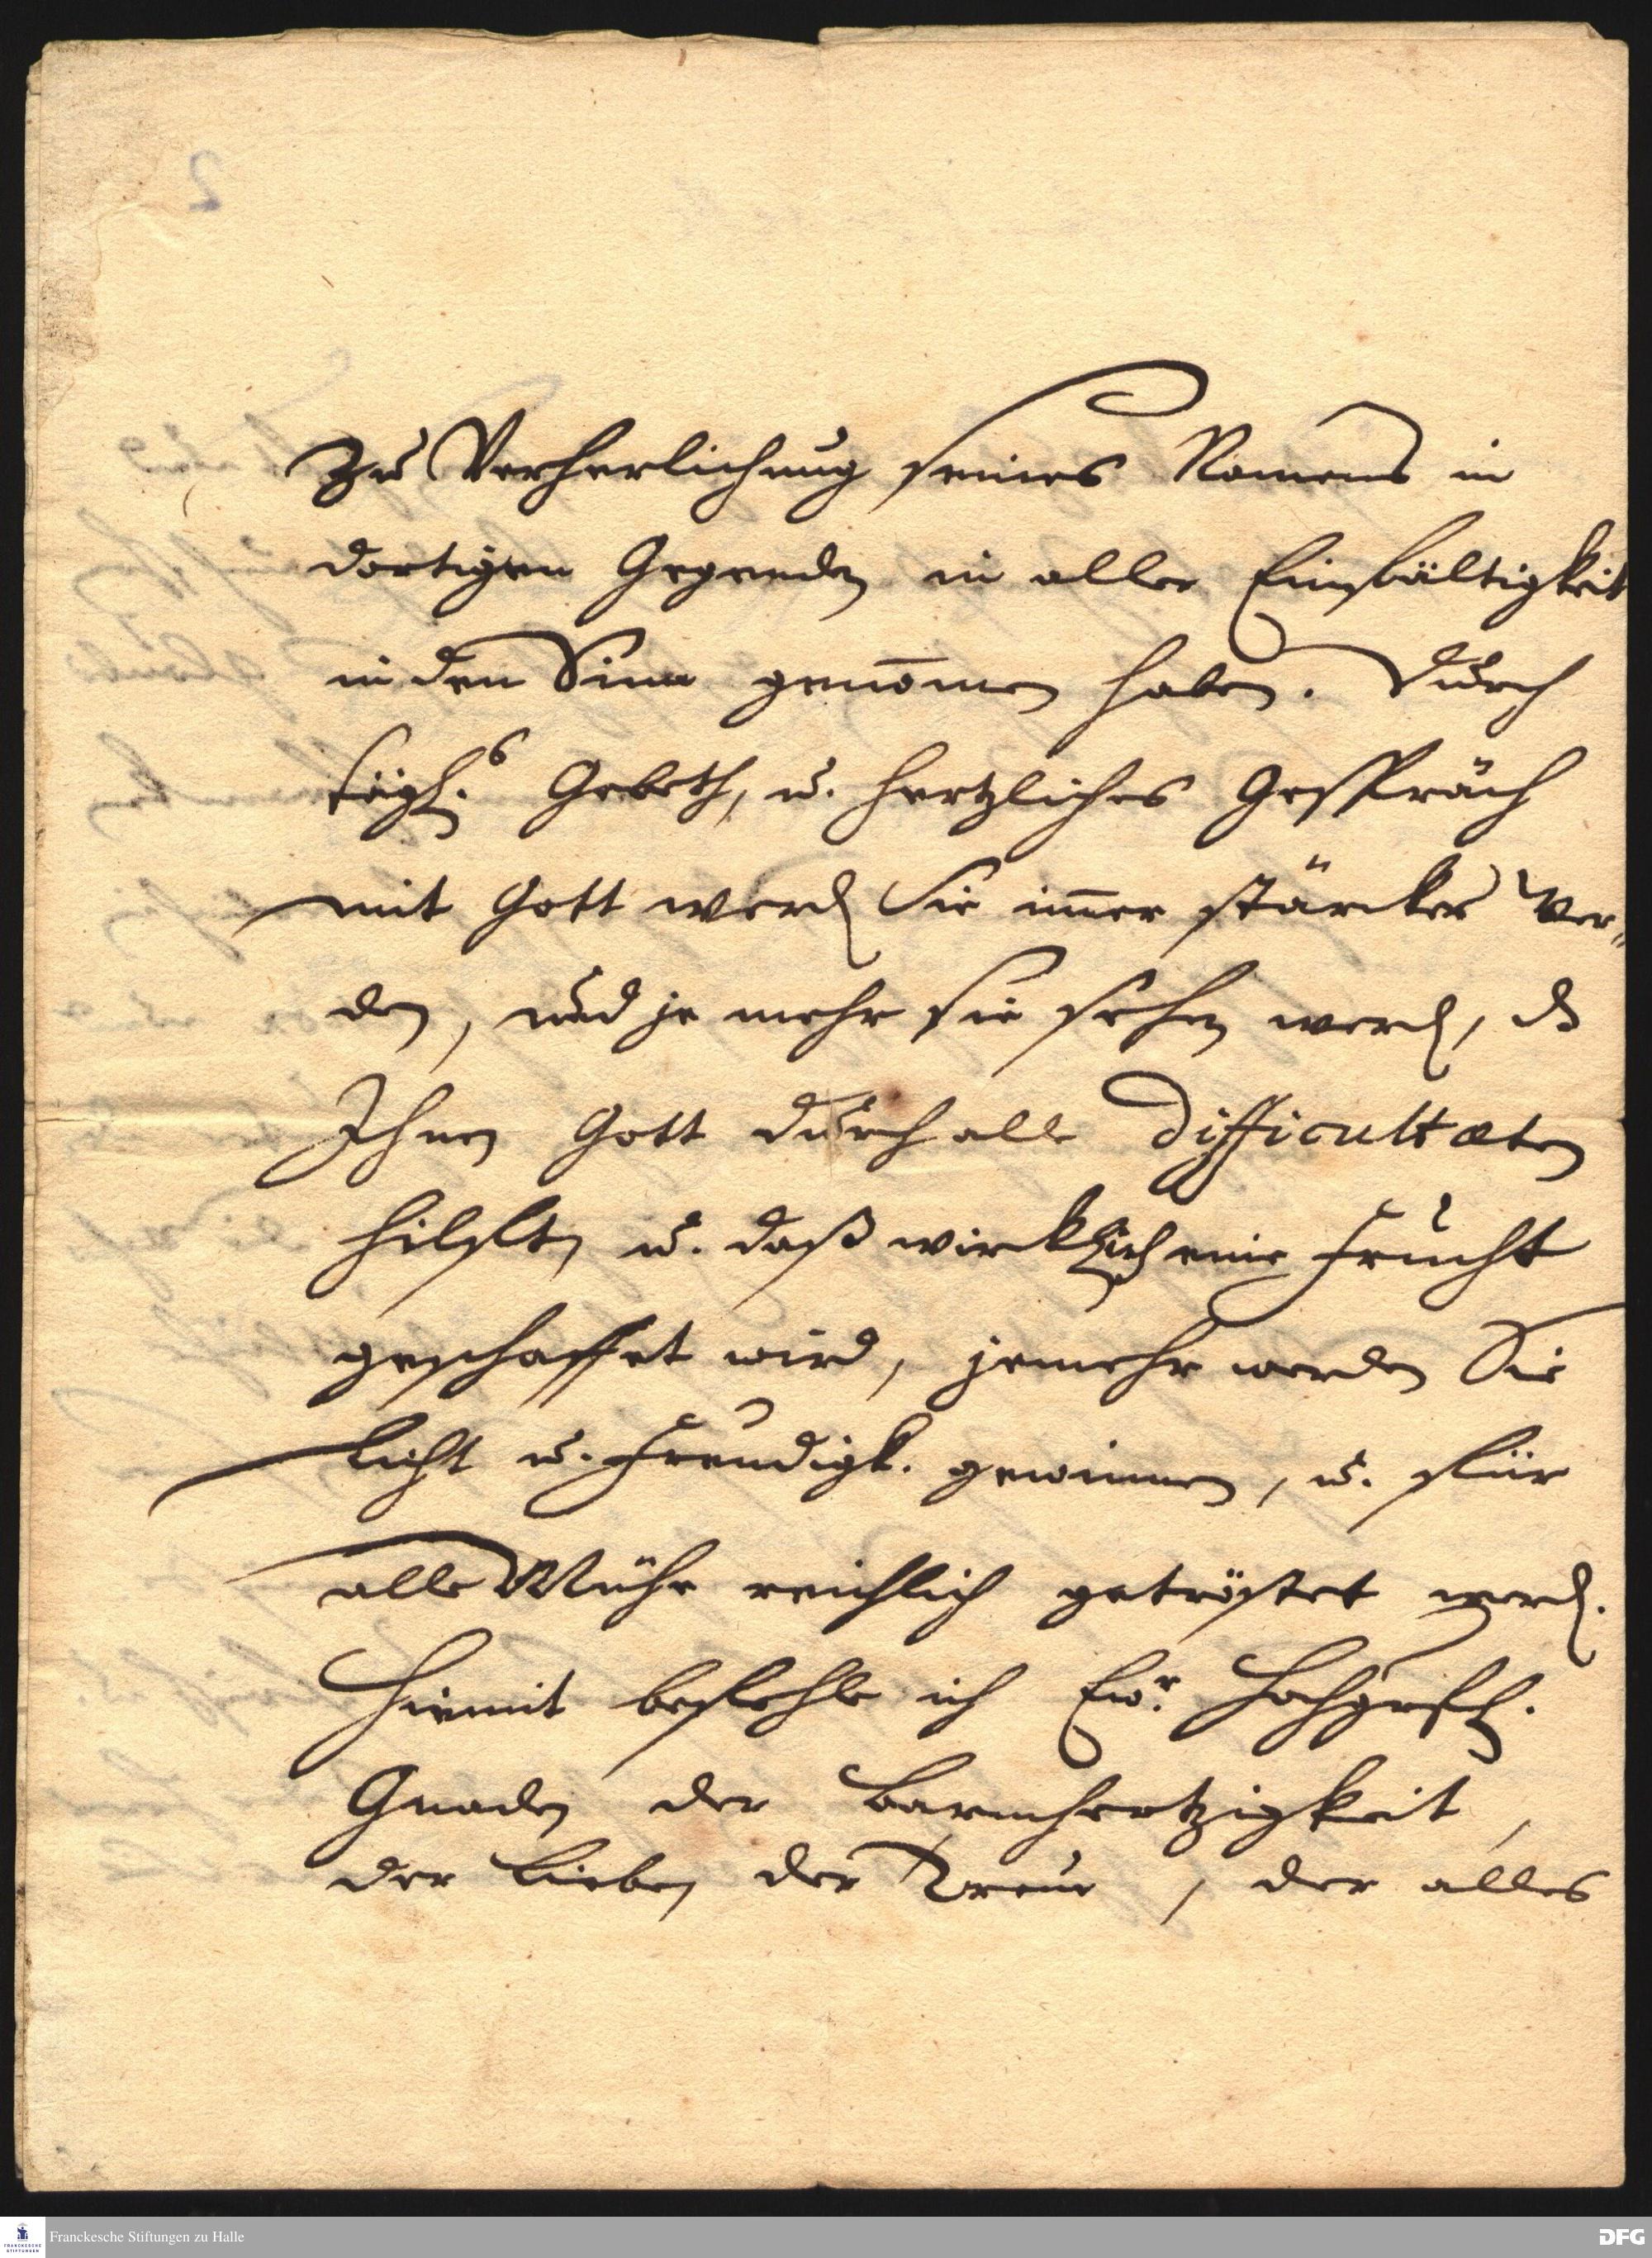 zu Verherlichung seines Namens in
dortigen Gegenden in aller Einfältigkeit
in den Sinn genom̄en haben. Durch
tägl.s Gebeth, u. hertzliches Gespräch
mit Gott werd. Sie im̄er stärcker wer„
den, und je mehr sie sehen werd., dß
Ihnen Gott durch alle Difficultæten
hilfft, u. daß wircklich eine Frucht
geschaffet wird, jemehr werden Sie
Licht u. Freudigk. gewinnen, u. für
alle Mühe reichlich getröstet werd.
Hiemit befehle ich Ewr. Hochgräfl.
Gnaden der Barmhertzigkeit,
der Lieben der Treue, der alles
2
Franckesche Stiftungen zu Halle
DFG